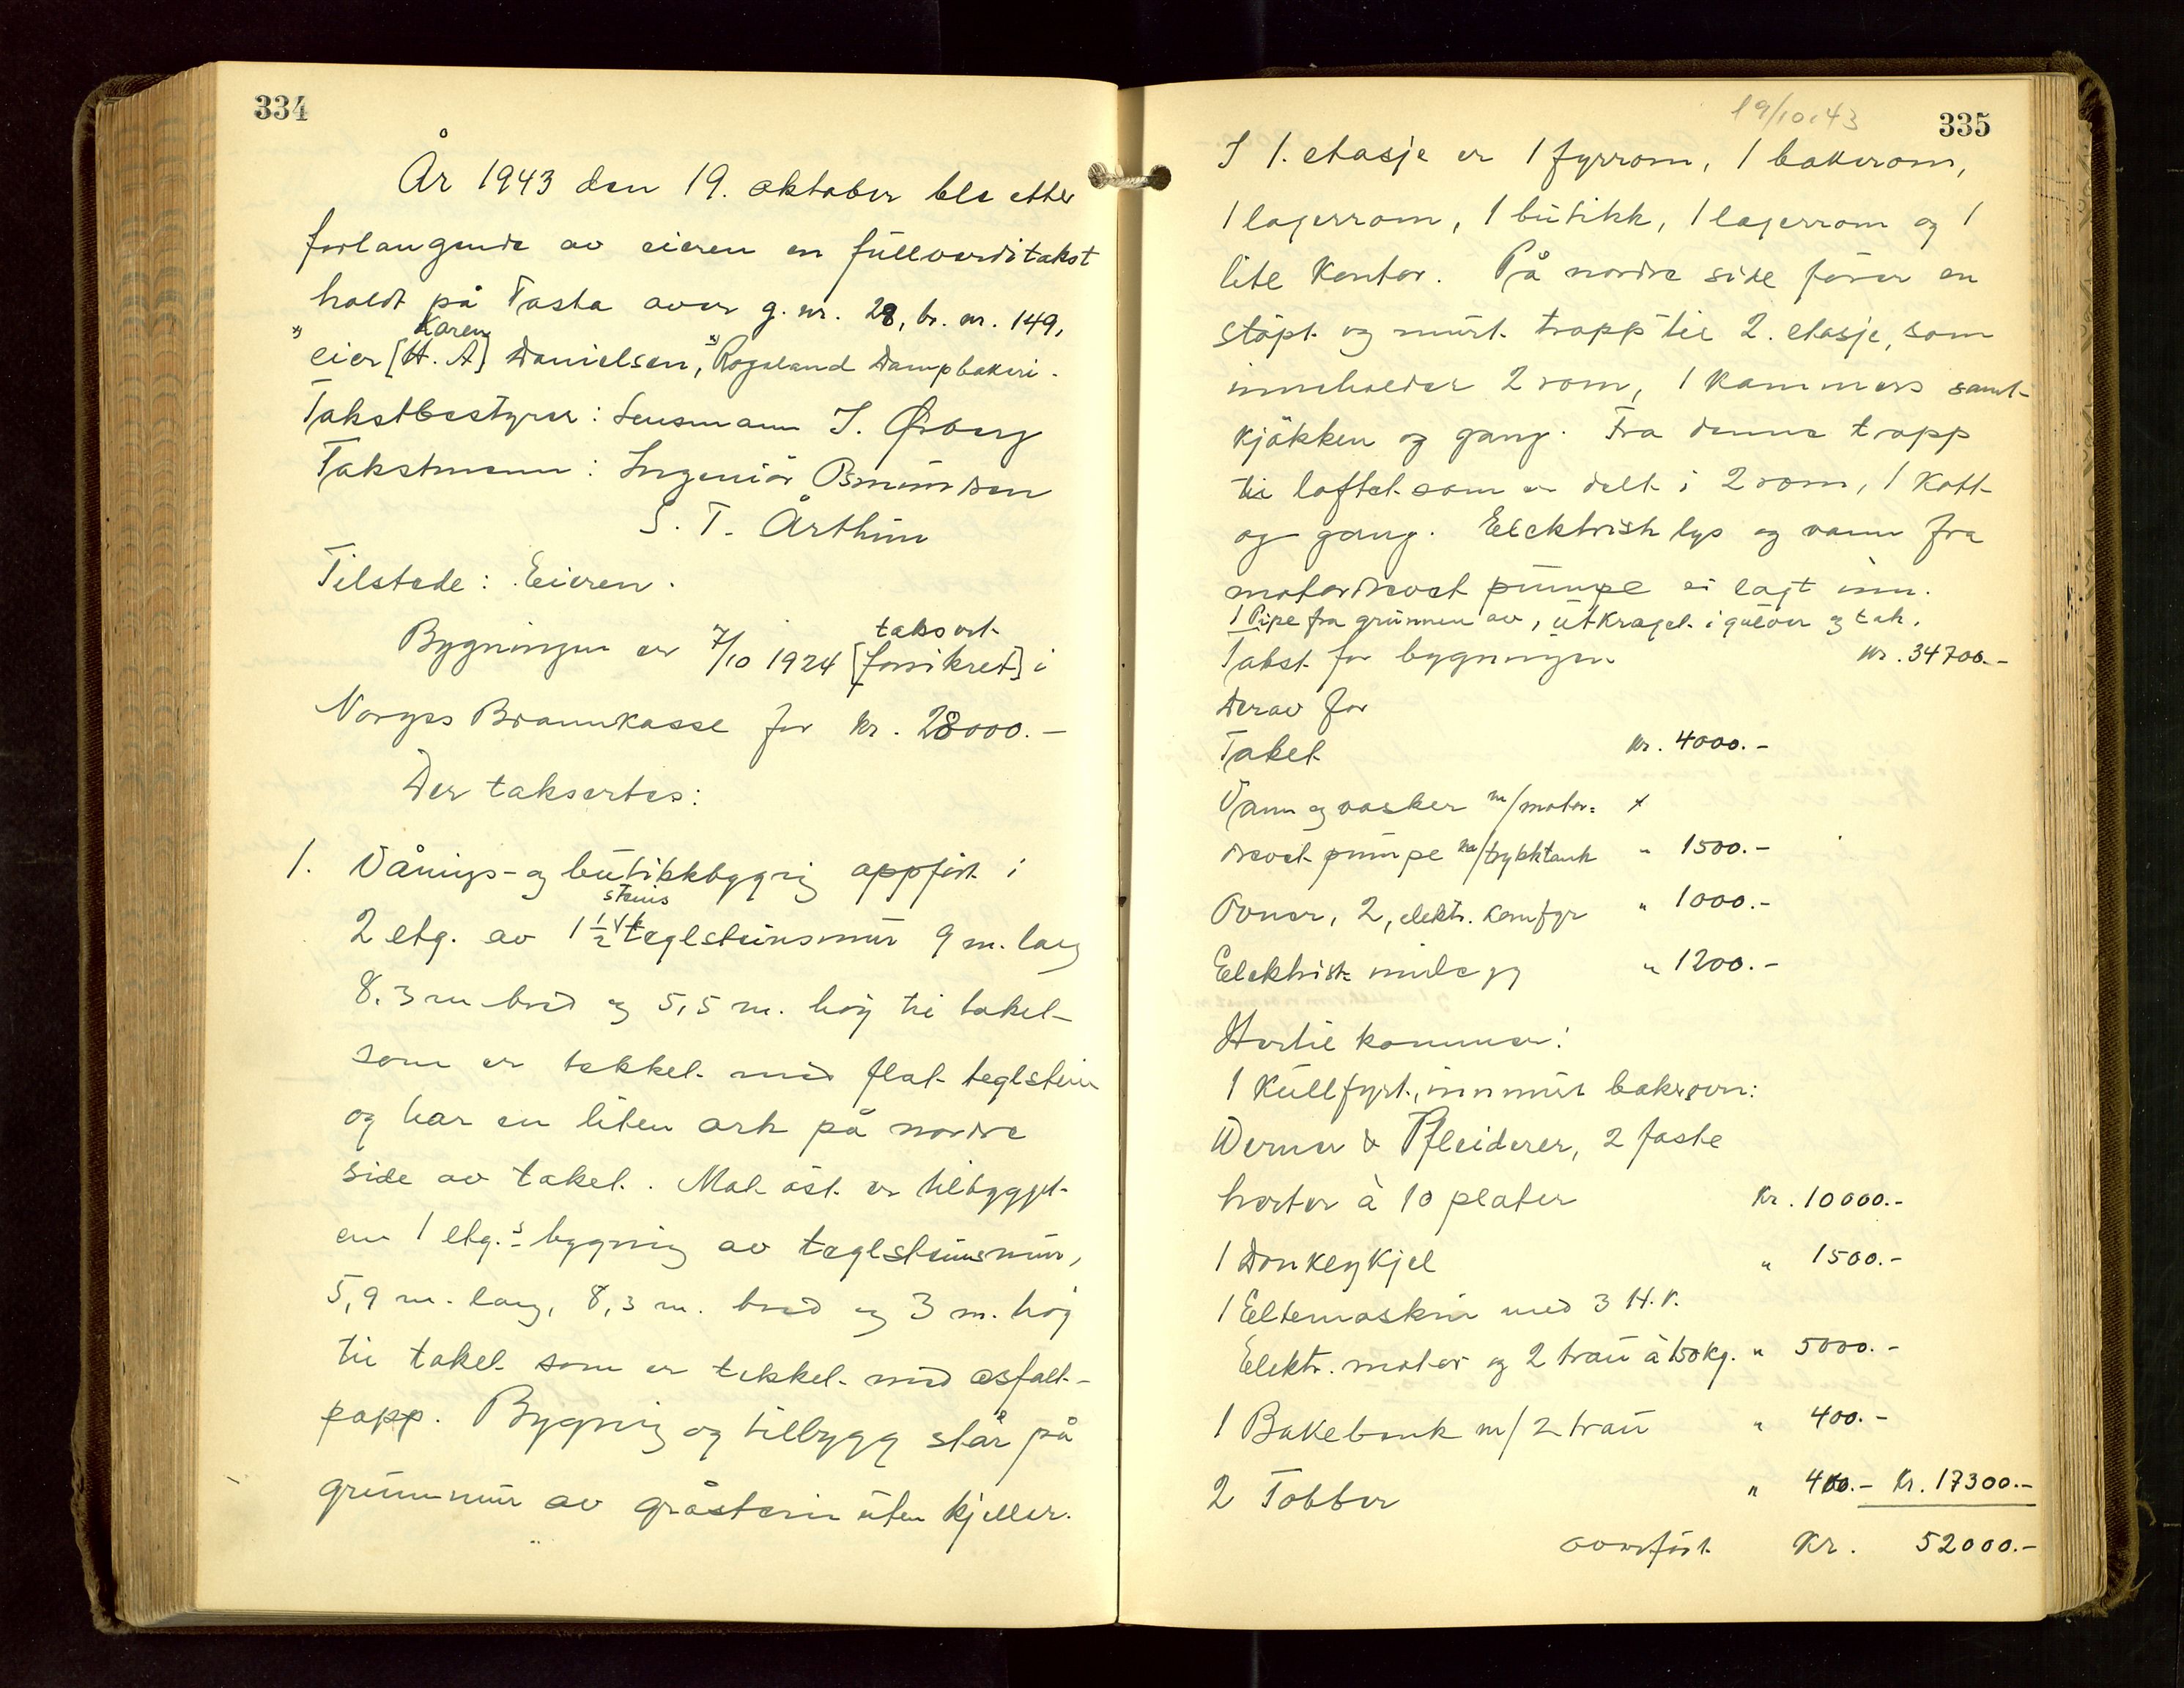 334
År 1943 den 19. oktober ble etter
forlangende av eieren en fullverditakst
holdt på Tasta over g. nr. 28, br. nr. 149,
Karen
"eier [H. A] Danielsen," Rogaland Dampbakeri.
Takstbestyrer: Lensmann I. Øxberg
Takstmenn: Ingeniör Osmundsen
S. T. Årthun
Tilstede: Eieren.
taksert
Bygningen er 7/10 1924 [forsikret] i
Norges Brannkasse for kr. 28000.-
Der taksertes:
1. Vånings- og butikkbygnig oppfört i
steins
2 etg. av 1 1/2 teglsteinsmur 9 m. lang
8.3 m bred og 5,5 m. høy til taket
som er tekket med flat teglstein
og har en liten ark på nordre
side av taket. Mot öst er tilbygget
en 1 etg.s bygning av teglsteinsmur,
5,9 m. lang, 8,3 m. bred og 3 m. høy
til taket som er tekket med asfalt-
papp. Bygnig og tilbygg står på
grunnmur av gråstein uten kjeller.
19/10.43
335
I 1. etasje er 1 fyrrom, 1 bakerom,
1 lagerrom, 1 butikk, 1 lagerrom og 1
lite kontor. På nordre side förer en
stöpt og murt trapp til 2. etasje, som
inneholder 2 rom, 1 kammers samt
kjökken og gang. Fra denne trapp
til loftet som er delt i 2 rom, 1 kott
og gang. Elektrisk lys og vann fra
motordrevet pumpe er lagt inn.
1 Pipe fra grunnen av, utkraget i gulver og tak.
Takst for bygningen kr. 34700.-
Derav for
Taket kr. 4000.-
Vann og vasker m/motor=
drevet pumpe m/trykktank " 1500.-
Ovner, 2, elektr. komfyr " 1000.-
Elektrisk innlegg " 1200.-
Hertil kommer:
1 Kullfyrt, innmurt bakerovn:
Werner & Pfleiderer, 2 faste
herter à 10 plater Kr. 10000.-
1 Donkeykjel " 1500.-
1 Eltemaskin med 3 H.K.
Elektr. motor og 2 trau à 150 kg. " 5000.-
1 Bakebenk m/ 2 trau " 400.-
2 Tobber " 400.- Kr. 17300.-
overfört Kr. 52000.-